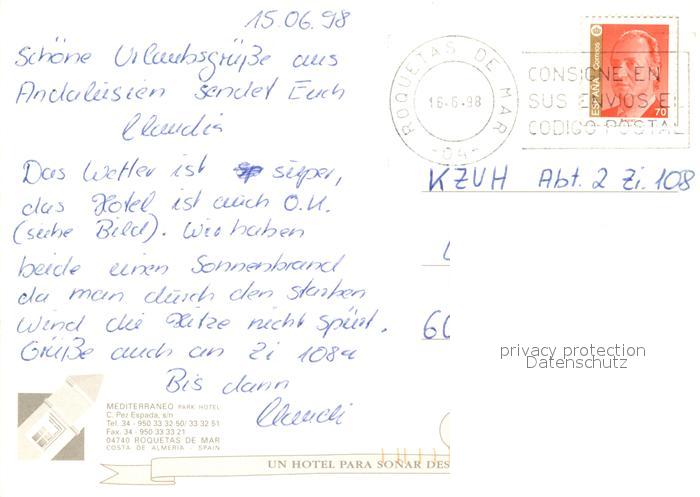 15.06.98
Schöne Urlaubsgrüße aus
Andalusien sendet Euch
Claudia
Das Wetter ist super,
das Hotel ist auch O.K.
(siehe Bild). Wir haben
beide einen Sonnenbrand
da man durch den starken
Wind die Hitze nicht spürt.
Grüße auch an Zi 108a
Bis dann
Claudi
MEDITERRANEO PARK HOTEL
C. Pez Espada, s/n
Tel. 34 - 950 33 32 50/ 33 32 51
Fax. 34 - 950 33 33 21
04740 ROQUETAS DE MAR
COSTA DE ALMERIA - SPAIN
UN HOTEL PARA SOÑAR DES
ROQUETAS DE MAR
16-6-98
-04-
CONSIGNE EN
SUS ENVIOS EL
CODIGO POSTAL
ESPAÑA Correos
70
KZVH Abt. 2 Zi. 108
privacy protection
Datenschutz